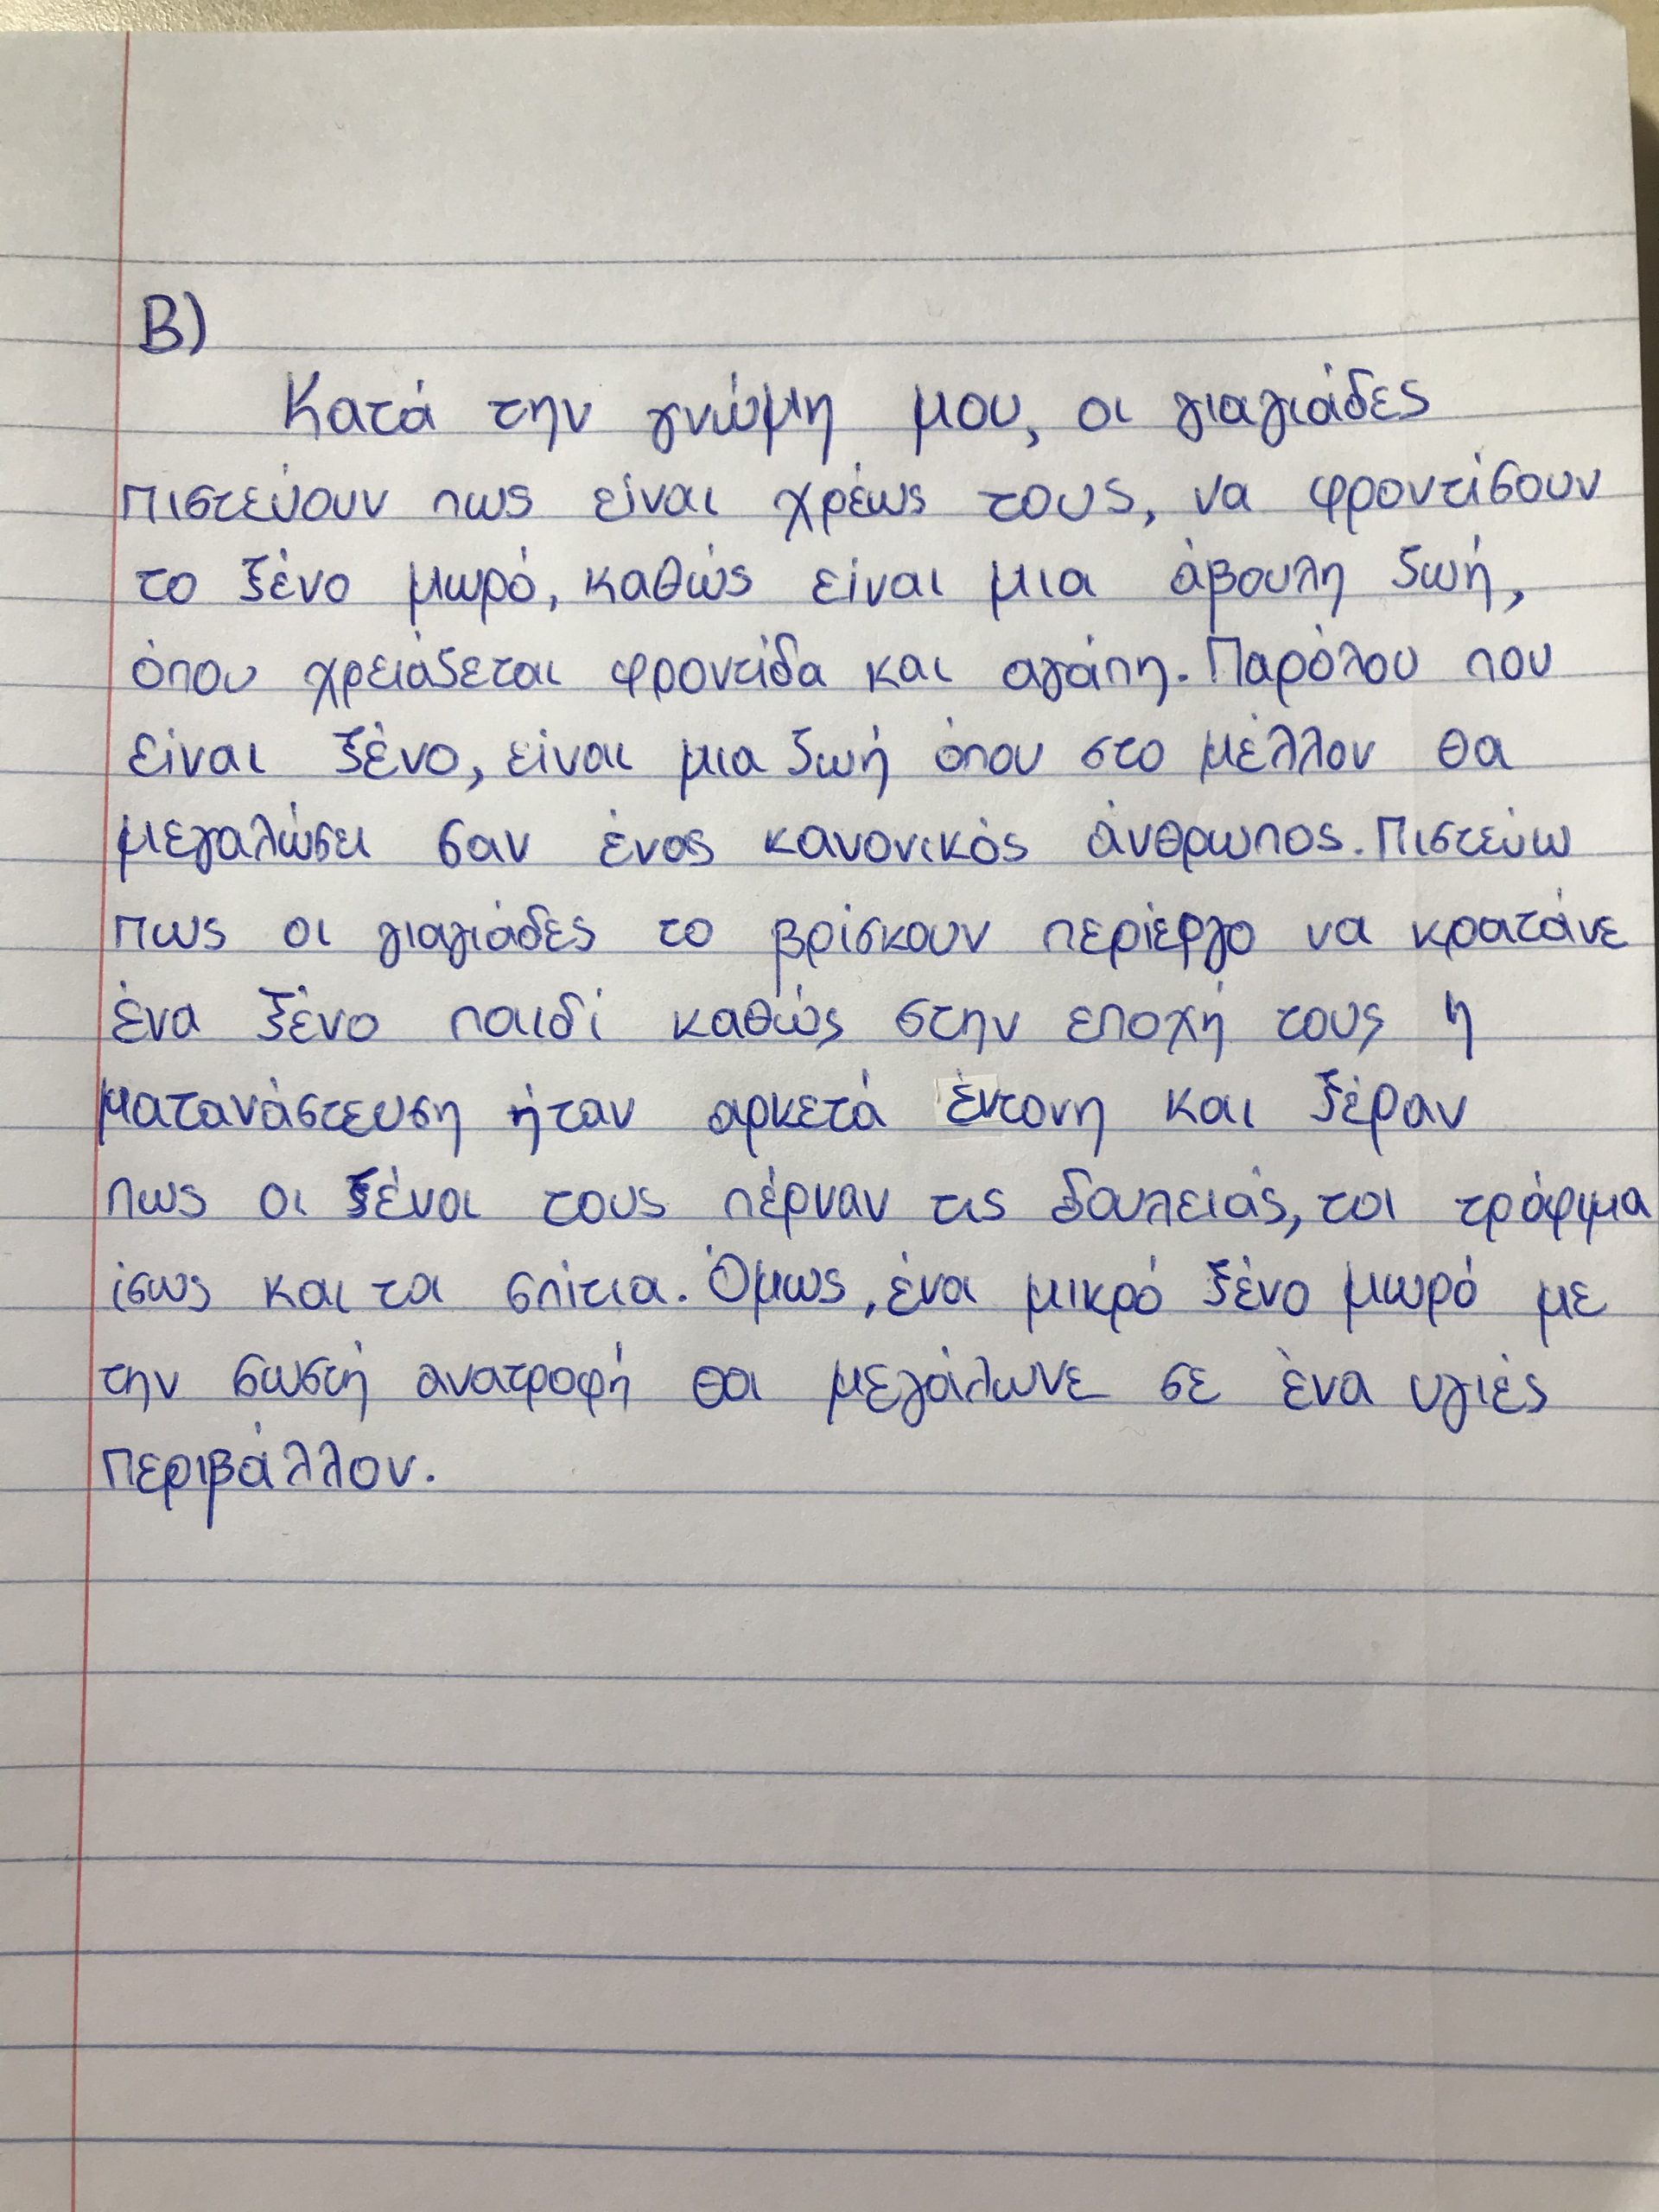 Β)
Κατά την γνώμη μου, οι γιαγιάδες
πιστεύουν πως είναι χρέως τους, να φροντίσουν
το ξένο μωρό, καθώς είναι μια άβουλη ζωή,
όπου χρειάζεται φροντίδα και αγάπη. Παρόλου που
είναι ξένο, είναι μια ζωή όπου στο μέλλον θα
μεγαλώσει σαν ένος κανονικός άνθρωπος. Πιστεύω
πως οι γιαγιάδες το βρίσκουν περίεργο να κρατάνε
ένα ξένο παιδί καθώς στην εποχή τους η
ματανάστευση ήταν αρκετά έντονη και ξέραν
πως οι ξένοι τους πέρναν τις δουλειάς, τα τρόφιμα
ίσως και τα σπίτια. Όμως, ένα μικρό ξένο μωρό με
την σωστή ανατροφή θα μεγάλωνε σε ένα υγιές
περιβάλλον.